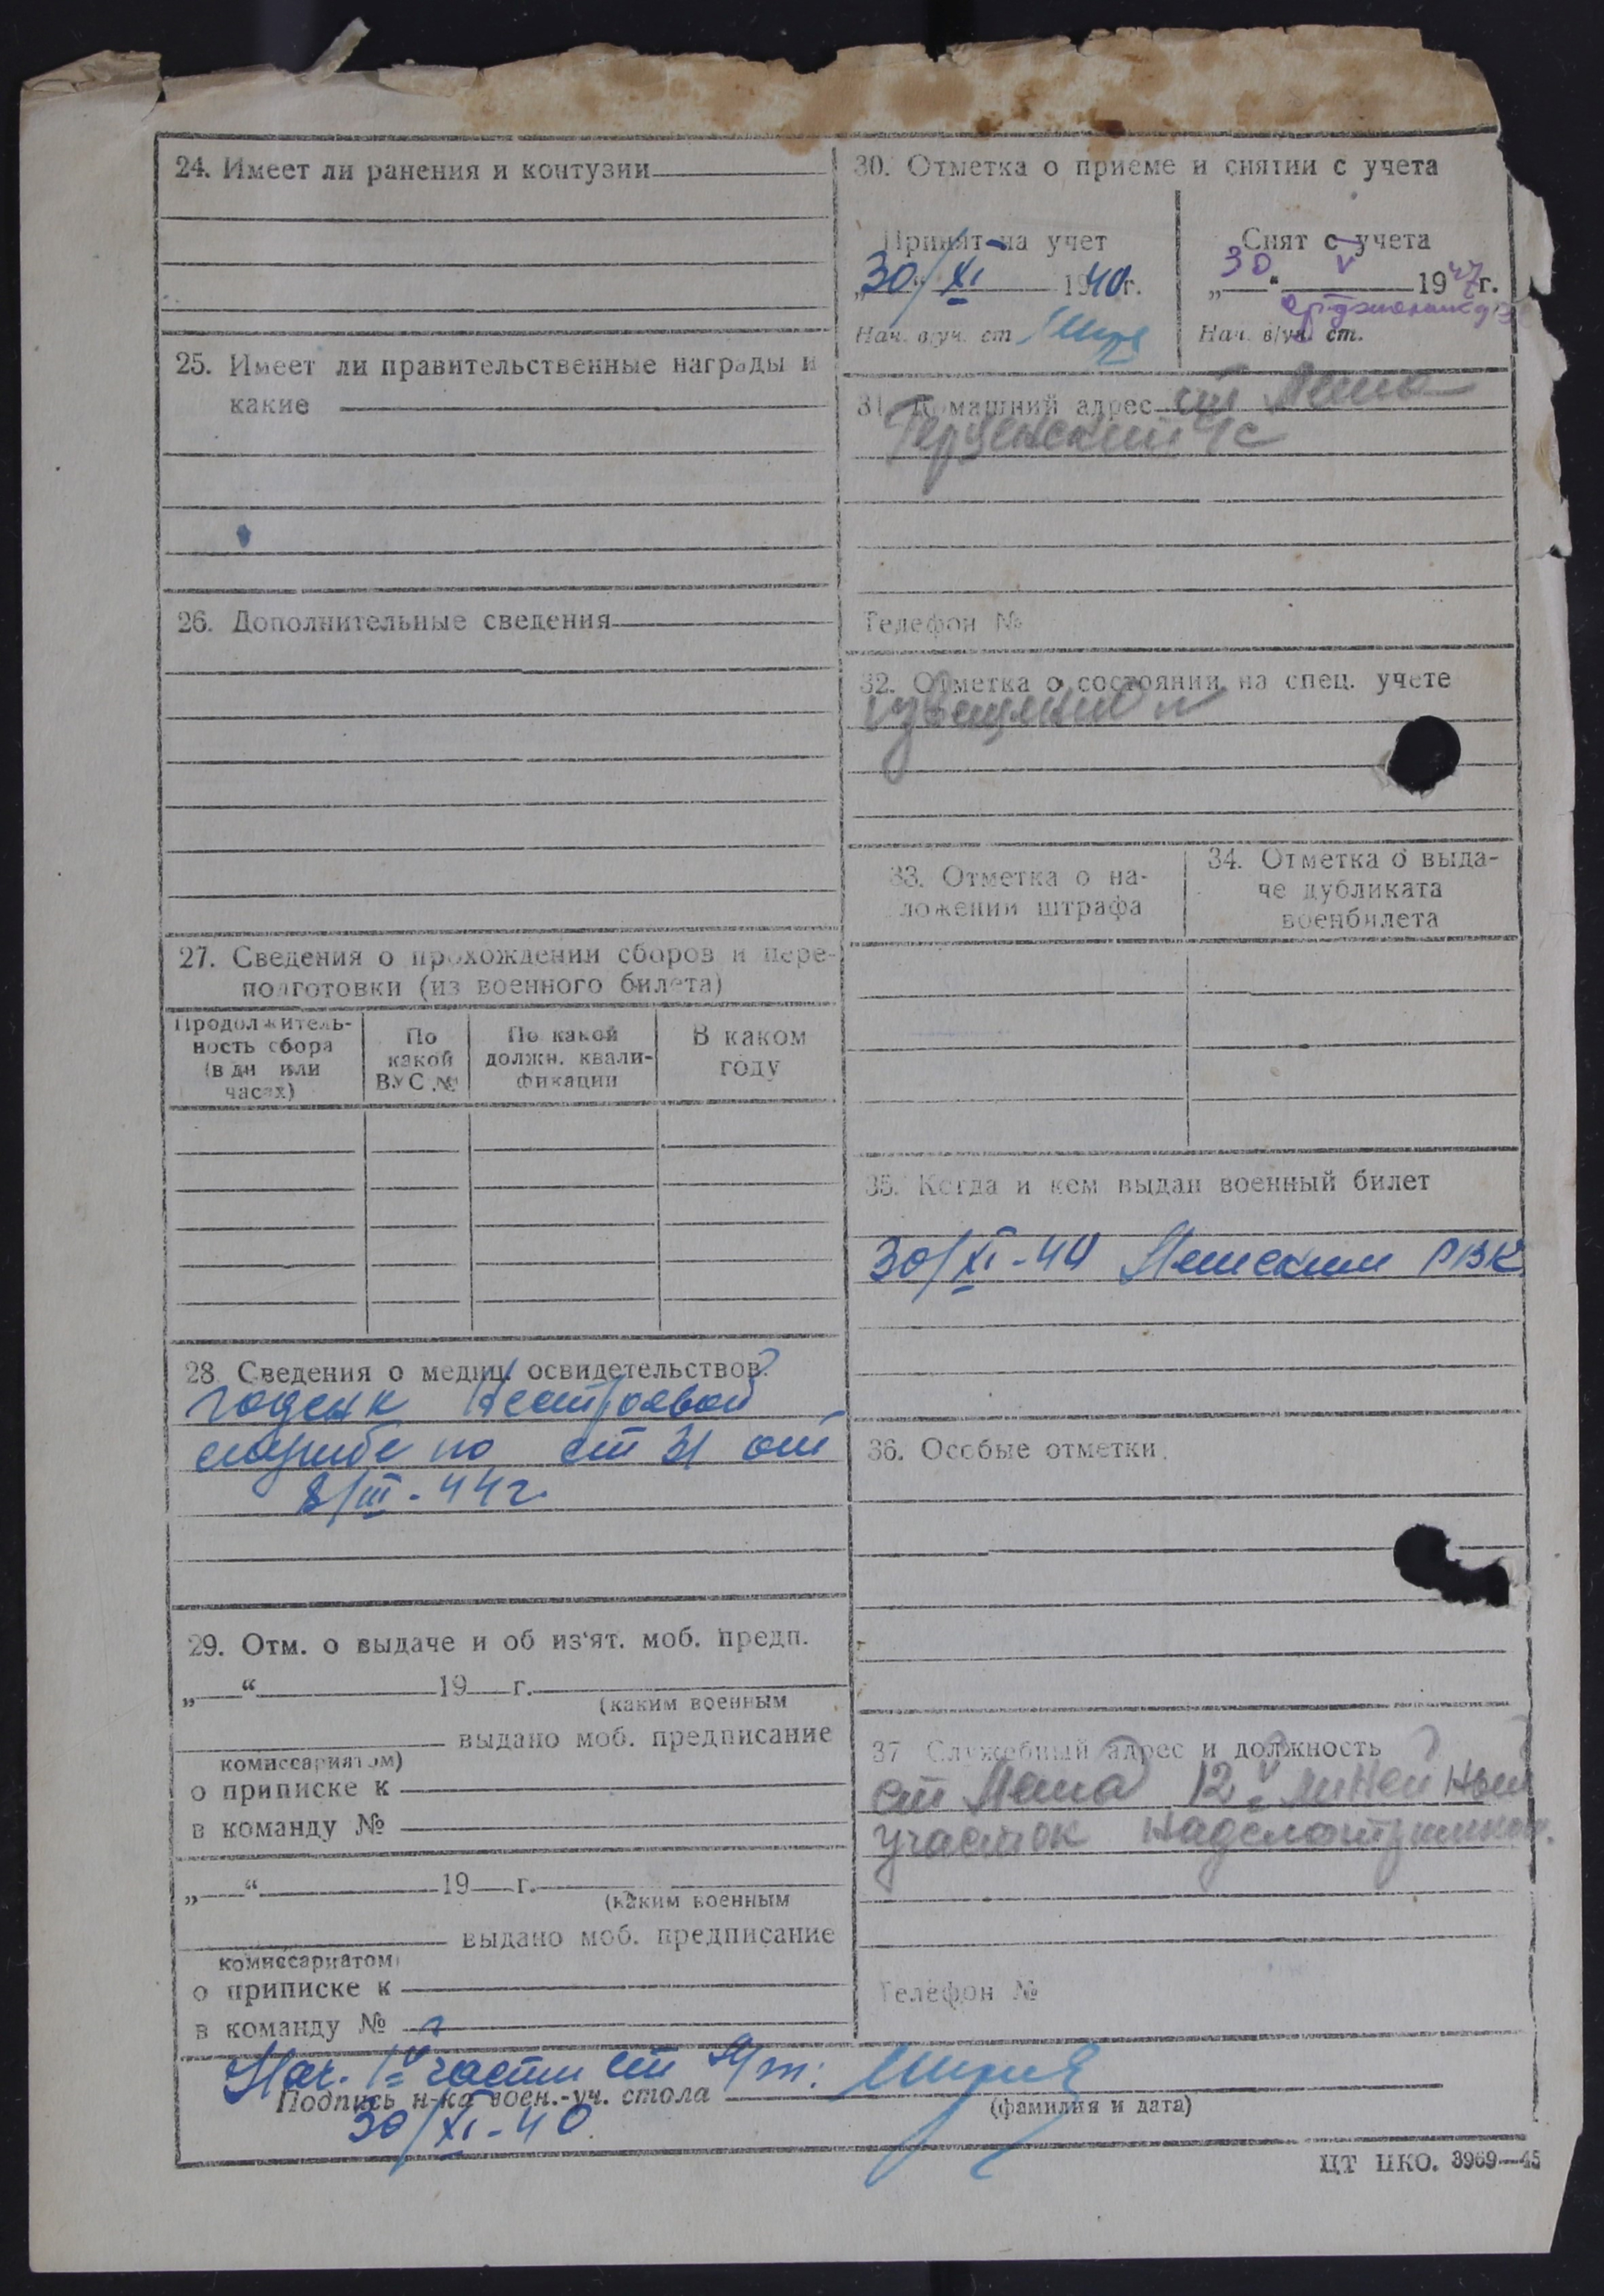 24. Имеет ли ранения и контузии
25. Имеет ли правительственные награды и
какие
26. Дополнительные сведения
27. Сведения о прохождении сборов и пере-
подготовки (из военного билета)
Продолжитель-
ность сбора
(в дн или
часах)
По
какой
ВУС №
По какой
должн. квали-
фикации
В каком
году
28 Сведения о медиц. освидетельствов.
годен к нестроевой
службе по ст 31 от
8/III-44г.
29. Отм. о выдаче и об из‘ят. моб. предп.
„ “ 19 г.
(каким военным
выдано моб. предписание
комиссариатом)
о приписке к
в команду №
„ “ 19 г.
(каким военным
выдано моб. предписание
комиссариатом)
о приписке к
в команду №
30. Отметка о приеме и снятии с учета
Принят на учет
„30“ XI 1940г.
Нач. в/уч. ст.
Снят с учета
„30“ V 1947г.
Нач. в/уч. ст.
31. Домашний адрес ст
с/с
Телефон №
32. Отметка о состоянии на спец. учете
33. Отметка о на-
ложении штрафа
34. Отметка о выда-
че дубликата
военбилета
35. Когда и кем выдан военный билет
30/XI-40 РВК
36. Особые отметки
37 Служебный адрес и должность
ст 12й линейный
участок надсмотрщиком.
Телефон №
Нач. 1й части ст
Подпись н-ка воен.-уч. стола
(фамилия и дата)
30/XI-40.
ЦТ НКО. 3969—45